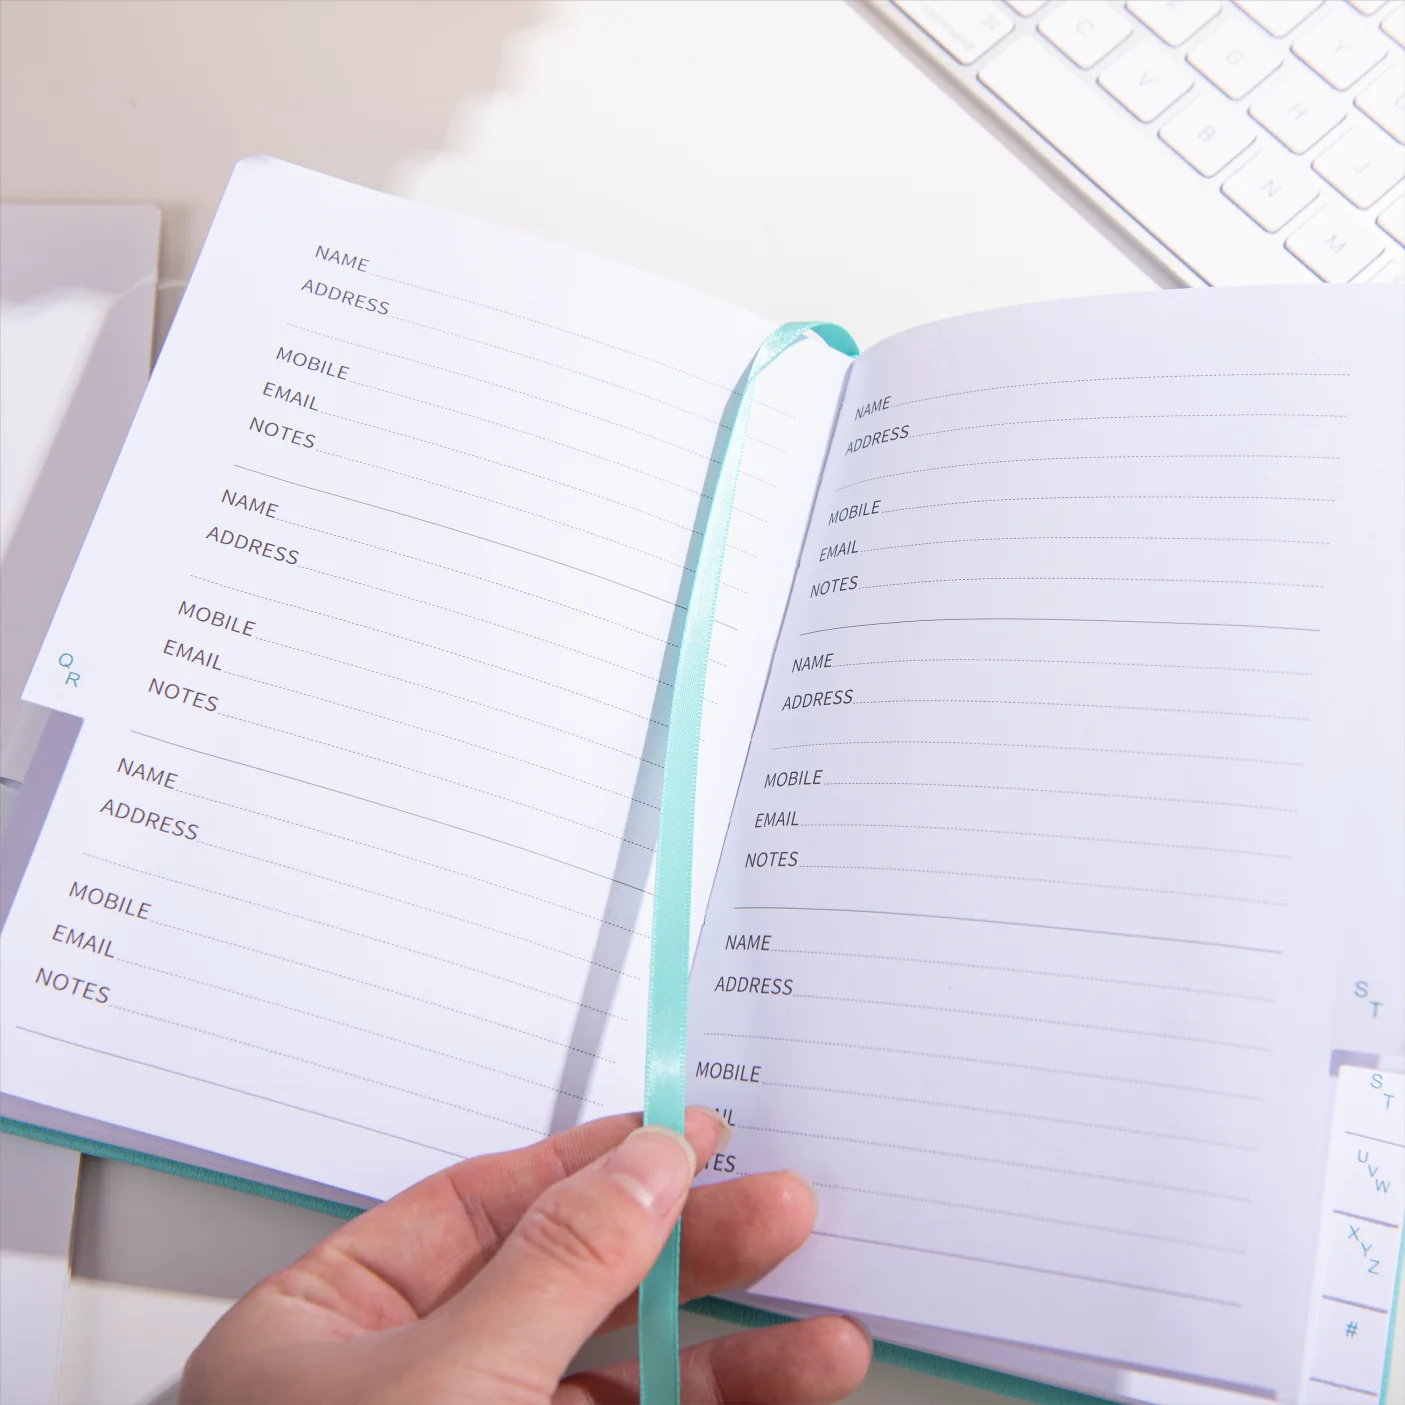 command
⌘
C
V
B
N
M
F
G
H
J
Y
NAME
ADDRESS
MOBILE
EMAIL
NOTES
NAME
ADDRESS
MOBILE
EMAIL
NOTES
NAME
ADDRESS
MOBILE
EMAIL
NOTES
Q
R
NAME
ADDRESS
MOBILE
EMAIL
NOTES
NAME
ADDRESS
MOBILE
EMAIL
NOTES
NAME
ADDRESS
MOBILE
AIL
TES
S
T
S
T
U
V
W
X
Y
Z
#